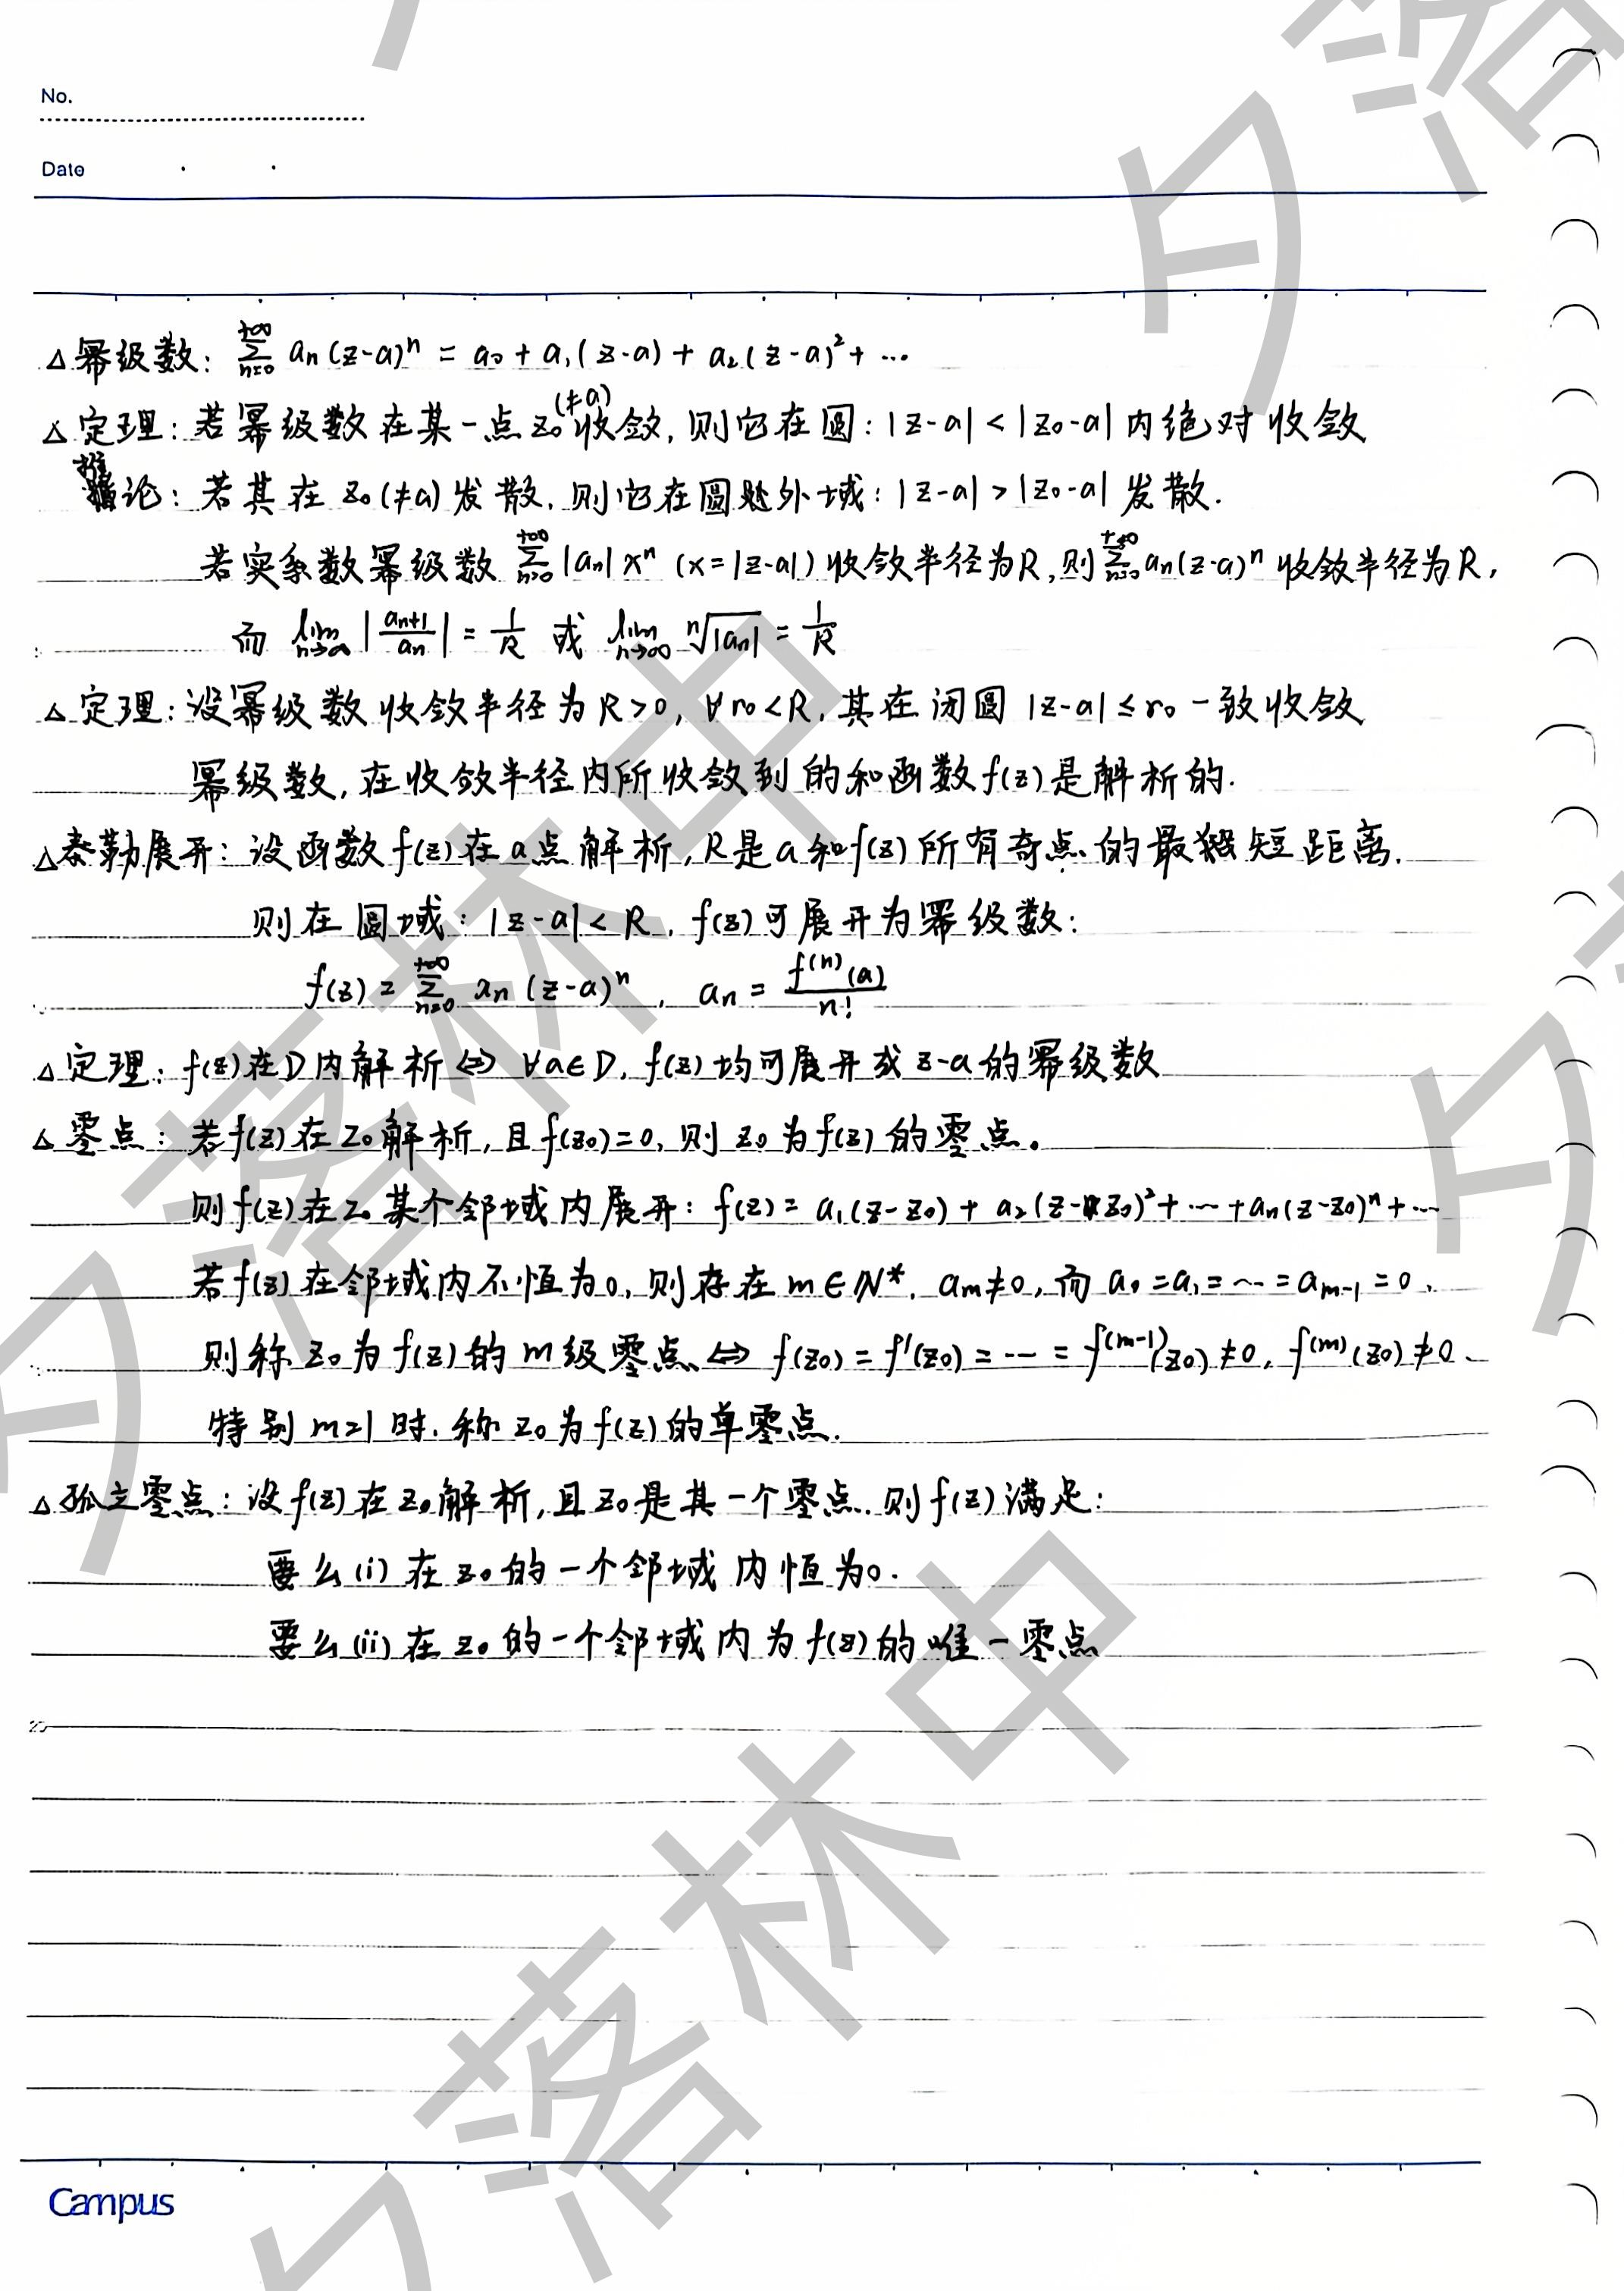 No.
Date
△幂级数: $\sum_{n=0}^{+\infty} a_n (z-a)^n = a_0 + a_1(z-a) + a_2(z-a)^2 + \cdots$
△定理: 若幂级数在某一点 $z_0$ (≠a) 收敛, 则它在圆: $|z-a| < |z_0-a|$ 内绝对收敛
推论: 若其在 $z_0$ (≠a) 发散, 则它在圆处外域: $|z-a| > |z_0-a|$ 发散.
若实系数幂级数 $\sum_{n=0}^{+\infty} |a_n| x^n$ (x=|z-a|) 收敛半径为R, 则 $\sum_{n=0}^{+\infty} a_n(z-a)^n$ 收敛半径为R,
而 $\lim_{n\to\infty} |\frac{a_{n+1}}{a_n}| = \frac{1}{R}$ 或 $\lim_{n\to\infty} \sqrt[n]{|a_n|} = \frac{1}{R}$
△定理: 设幂级数收敛半径为 R>0, ∀$r_0$<R, 其在闭圆 $|z-a| \le r_0$ 一致收敛
幂级数, 在收敛半径内所收敛到的和函数 f(z) 是解析的.
△泰勒展开: 设函数 f(z) 在 a 点解析, R是 a 和 f(z) 所有奇点的最短距离.
则在圆域: $|z-a| < R$, f(z) 可展开为幂级数:
$f(z) = \sum_{n=0}^{+\infty} a_n (z-a)^n$, $a_n = \frac{f^{(n)}(a)}{n!}$
△定理: f(z) 在 D 内解析 ⇔ ∀a∈D, f(z) 均可展开成 z-a 的幂级数
△零点: 若 f(z) 在 $z_0$ 解析, 且 $f(z_0)=0$, 则 $z_0$ 为 f(z) 的零点。
则 f(z) 在 $z_0$ 某个邻域内展开: $f(z) = a_1(z-z_0) + a_2(z-z_0)^2 + \cdots + a_n(z-z_0)^n + \cdots$
若 f(z) 在邻域内不恒为0, 则存在 m∈N*, $a_m \neq 0$, 而 $a_0 = a_1 = \cdots = a_{m-1} = 0$,
则称 $z_0$ 为 f(z) 的 m 级零点 ⇔ $f(z_0) = f'(z_0) = \cdots = f^{(m-1)}(z_0) \neq 0$, $f^{(m)}(z_0) \neq 0$、
特别 m=1 时, 称 $z_0$ 为 f(z) 的单零点.
△孤立零点: 设 f(z) 在 $z_0$ 解析, 且 $z_0$ 是其一个零点. 则 f(z) 满足:
要么 (i) 在 $z_0$ 的一个邻域内恒为0.
要么 (ii) 在 $z_0$ 的一个邻域内为 f(z) 的唯一零点
Campus
夕落林中
夕落林中
夕落
夕